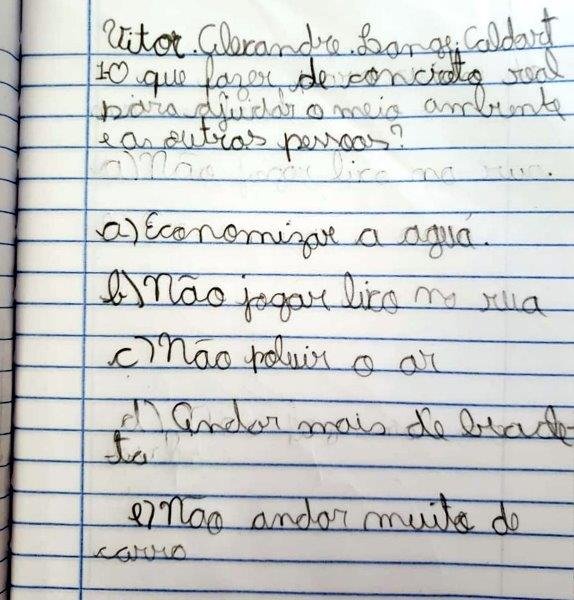 Vitor. Alexandre. Lange. Caldart
1-O que fazer, de concreto real
para ajudar o meio ambiente
e as outras pessoas?
a) Não jogar lixo na rua.
a) Economizar a aguá.
b) Não jogar lixo no rua
c) Não poluir o ar
d) Andar mais de bicicle-
ta
e) Não andar muito de
carro